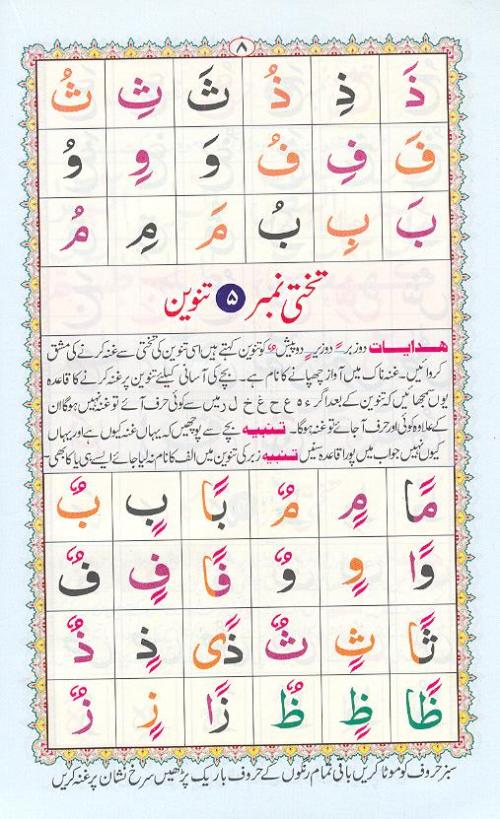 ۸
ذَ ذِ ذُ ثَ ثِ ثُ
فَ فِ فُ وَ وِ وُ
بَ بِ بُ مَ مِ مُ
تختی نمبر ۵ تنوین
ھدایات دو زبر ً دو زیر ٍ دو پیش ٌ کو تنوین کہتے ہیں اسی تنوین کی تختی سے غنہ کرنے کی مشق
کروائیں۔ غنہ ناک میں آواز چھپانے کا نام ہے۔ بچے کی آسانی کیلئے تنوین پر غنہ کرنے کا قاعدہ
یوں سمجھائیں کہ تنوین کے بعد اگر ء ہ ع ح غ خ ل ر میں سے کوئی حرف آئے تو غنہ نہیں ہوگا ان
کے علاوہ کوئی اور حرف آ جائے تو غنہ ہوگا۔ تنبیہ بچے سے پوچھیں کہ یہاں غنہ کیوں ہے اور یہاں
کیوں نہیں جواب میں پورا قاعدہ سنیں تنبیہ زبر کی تنوین میں الف کا نام نہ لیا جائے ایسے ہی یا کا بھی
مًا مٍ مٌ بًا بٍ بٌ
وًا وٍ وٌ فًا فٍ فٌ
ثًا ثٍ ثٌ ذًی ذٍ ذٌ
ظًا ظٍ ظٌ زًا زٍ زٌ
سبز حروف کو موٹا کریں باقی تمام رنگوں کے حروف باریک پڑھیں سرخ نشان پر غنہ کریں